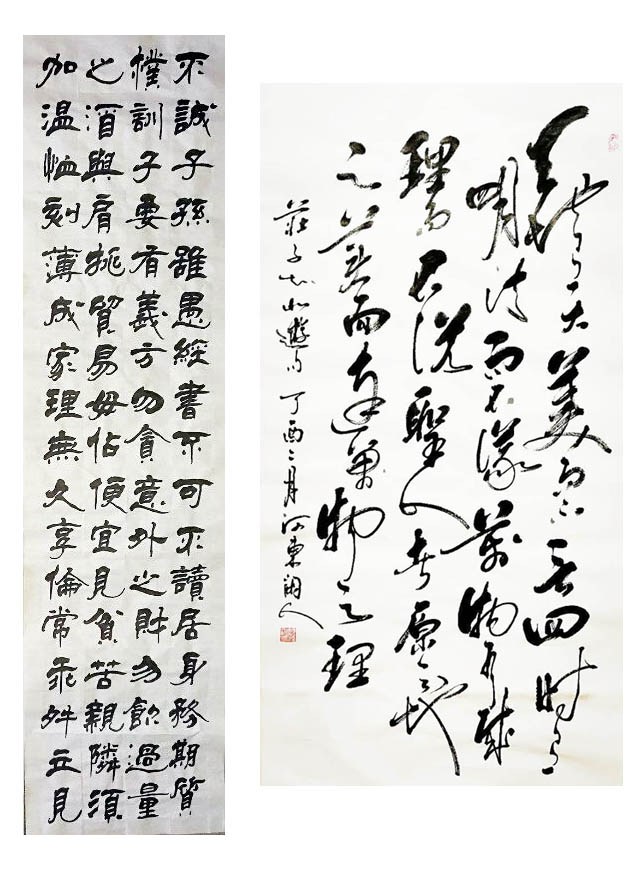 不誠子孫雖愚經書不可不讀居身務期質
樸訓子要有義方勿貪意外之財勿飲過量
之酒與肩挑貿易毋佔便宜見貧苦親鄰須
加温恤刻薄成家理無久享倫常乖舛立見
天地有大美而不言四时有
明法而不議萬物有成
理而不說聖人者原天地
之美而達萬物之理
莊子知北遊句 丁酉二月河東人